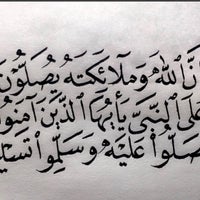 إِنَّ ٱللَّهَ وَمَلَائِكَتَهُ يُصَلُّونَ
عَلَى ٱلنَّبِيِّ يَا أَيُّهَا ٱلَّذِينَ آمَنُوا
صَلُّوا عَلَيْهِ وَسَلِّمُوا تَسْلِيمًا